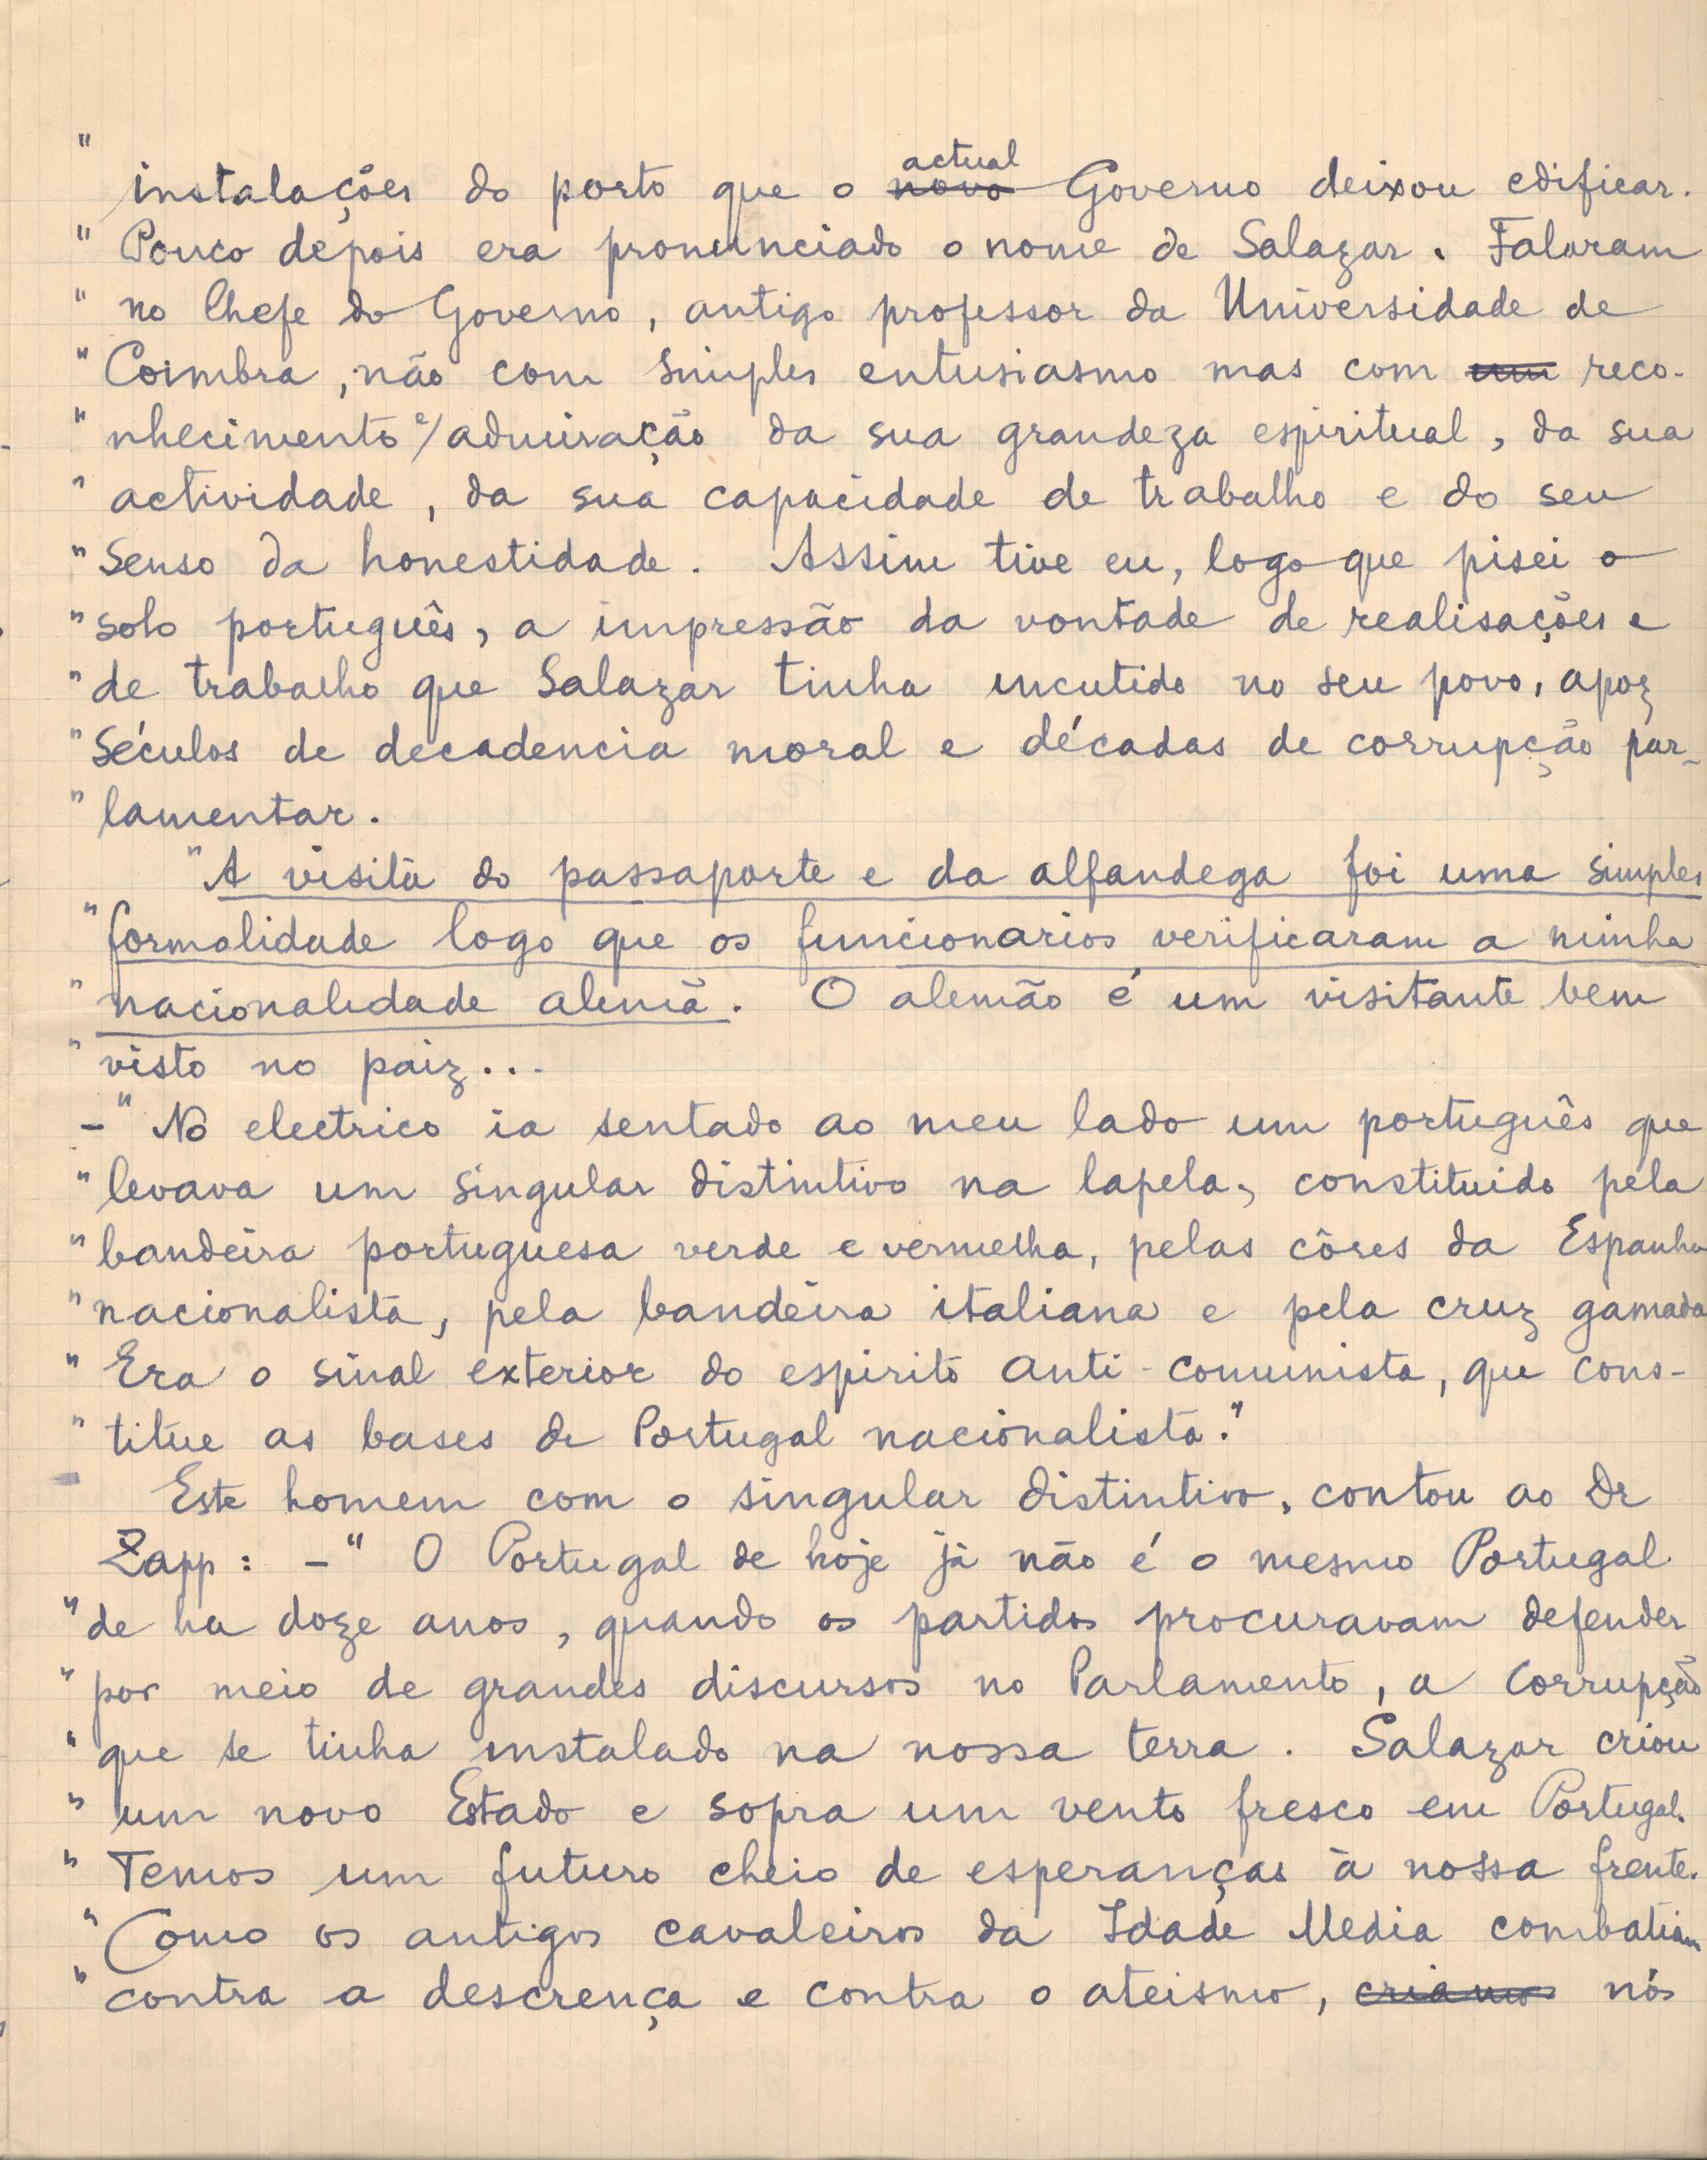 " instalações do porto que o ~~novo~~ actual Governo deixou edificar.
" Pouco depois era pronunciado o nome de Salazar. Falaram
" no Chefe do Governo, antigo professor da Universidade de
" Coimbra, não com simples entusiasmo mas com ~~um~~ reco-
" nhecimento e/ admiração da sua grandeza espiritual, da sua
" actividade, da sua capacidade de trabalho e do seu
" Senso da honestidade. Assim tive eu, logo que pisei o
" solo português, a impressão da vontade de realisações e
" de trabalho que Salazar tinha incutido no seu povo, apoz
" Séculos de decadencia moral e décadas de corrupção par-
" lamentar.
" A visita do passaporte e da alfandega foi uma simples
" formalidade logo que os funcionarios verificaram a minha
" nacionalidade alemã. O alemão é um visitante bem
" visto no paiz...
–" No electrico ia sentado ao meu lado um português que
" levava um singular distintivo na lapela, constituido pela
" bandeira portuguesa verde e vermelha, pelas côres da Espanha
" nacionalista, pela bandeira italiana e pela cruz gamada
" Era o sinal exterior do espirito anti-comunista, que cons-
" titue as bases de Portugal nacionalista."
Este homem com o singular distintivo, contou ao Dr
Zapp: –" O Portugal de hoje já não é o mesmo Portugal
" de ha doze anos, quando os partidos procuravam defender
" por meio de grandes discursos no Parlamento, a corrupção
" que se tinha instalado na nossa terra. Salazar criou
" um novo Estado e sopra um vento fresco em Portugal.
" Temos um futuro cheio de esperanças à nossa frente.
" Como os antigos cavaleiros da Idade Media combatiam
" contra a descrença e contra o ateismo, ~~criamos~~ nós